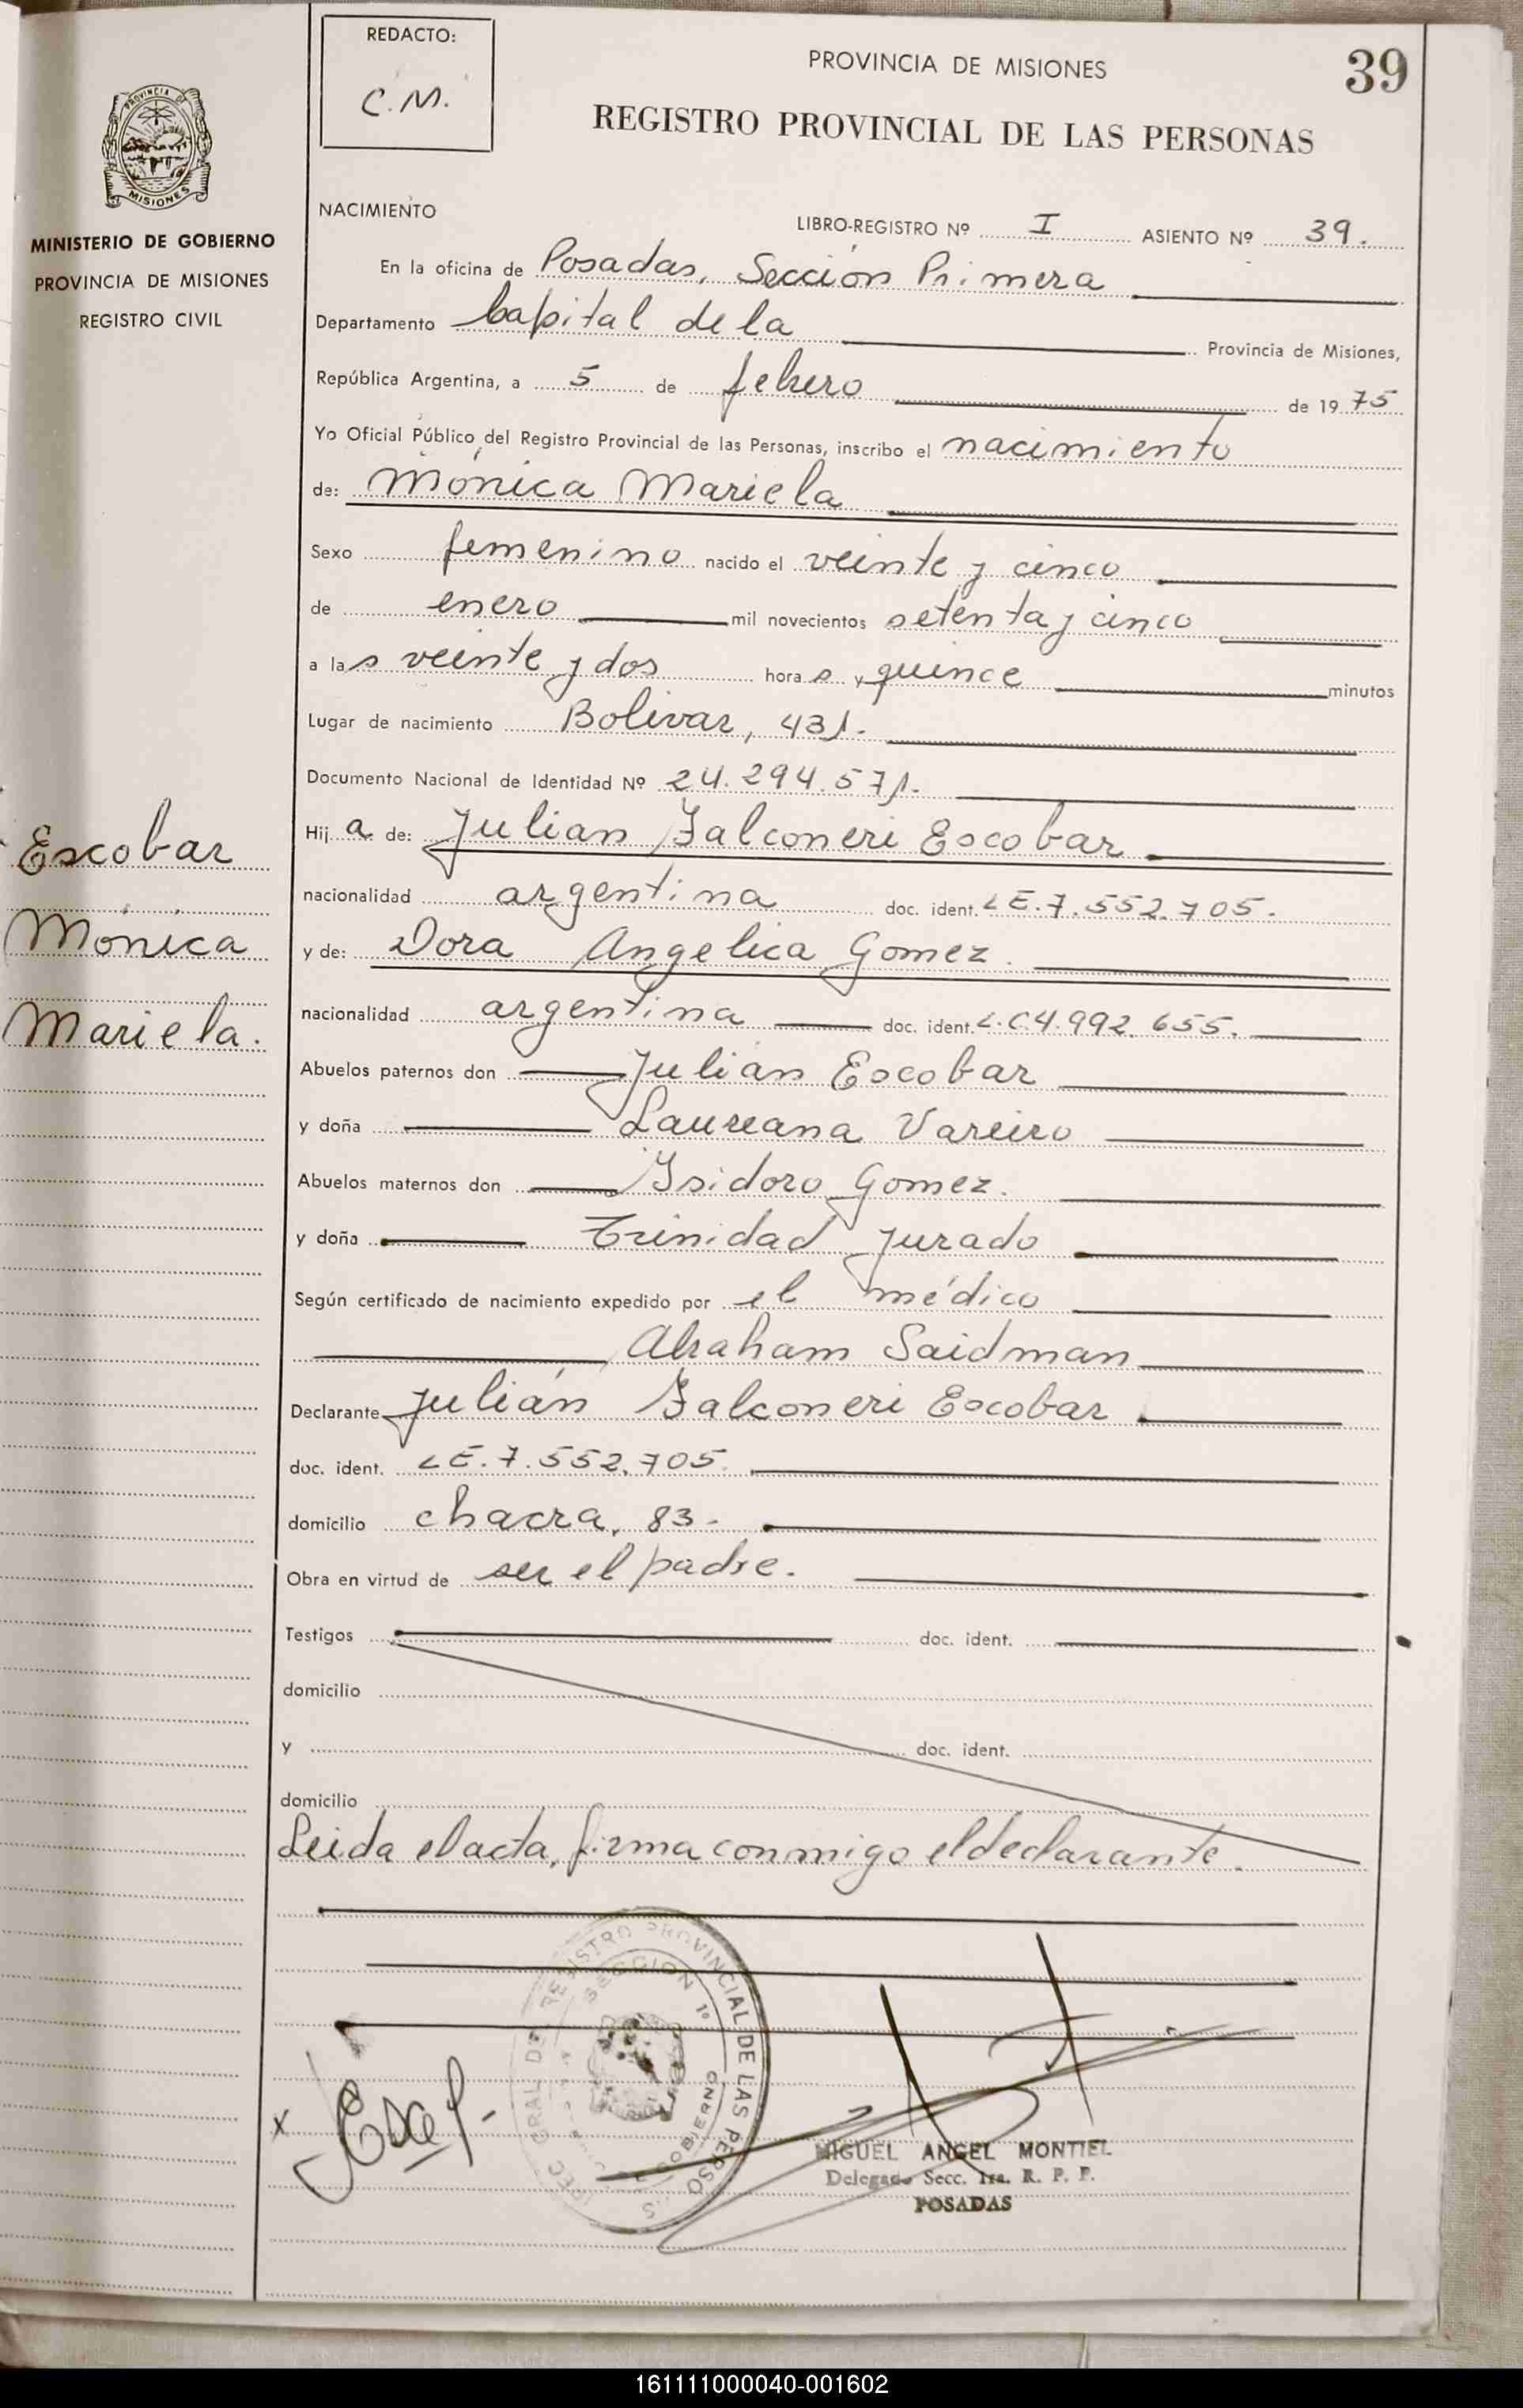 REDACTO:
C.M.
PROVINCIA DE MISIONES
39
REGISTRO PROVINCIAL DE LAS PERSONAS
PROVINCIA DE
MISIONES
MINISTERIO DE GOBIERNO
PROVINCIA DE MISIONES
REGISTRO CIVIL
NACIMIENTO
LIBRO-REGISTRO Nº I ASIENTO Nº 39.
En la oficina de Posadas, Sección Primera
Departamento Capital de la Provincia de Misiones,
República Argentina, a 5 de febrero de 1975
Yo Oficial Público del Registro Provincial de las Personas, inscribo el nacimiento
de: Mónica Mariela
Sexo femenino nacido el veinte y cinco
de enero mil novecientos setenta y cinco
a las veinte y dos horas y quince minutos
Lugar de nacimiento Bolivar, 431.
Documento Nacional de Identidad Nº 24.294.571.
Hija de: Julian Falconeri Escobar
nacionalidad argentina doc. ident. LE.7.552.705.
y de: Dora Angelica Gomez.
nacionalidad argentina doc. ident. L.C4.992.655.
Abuelos paternos don Julián Escobar
y doña Laureana Vareiro
Abuelos maternos don Isidoro Gomez.
y doña Trinidad Jurado
Según certificado de nacimiento expedido por el médico
Abraham Saidman
Declarante Julián Falconeri Escobar
doc. ident. LE.7.552.705.
domicilio chacra, 83.
Obra en virtud de ser el padre.
Testigos doc. ident.
domicilio
y doc. ident.
domicilio
Leida el acta, firma conmigo el declarante.
Escobar
Mónica
Mariela.
REGISTRO PROVINCIAL DE LAS PERSO
SECCION 1º
GOBIERNO
X
MIGUEL ANGEL MONTIEL
Delegado Secc. 1ra. R. P. P.
POSADAS
161111000040-001602